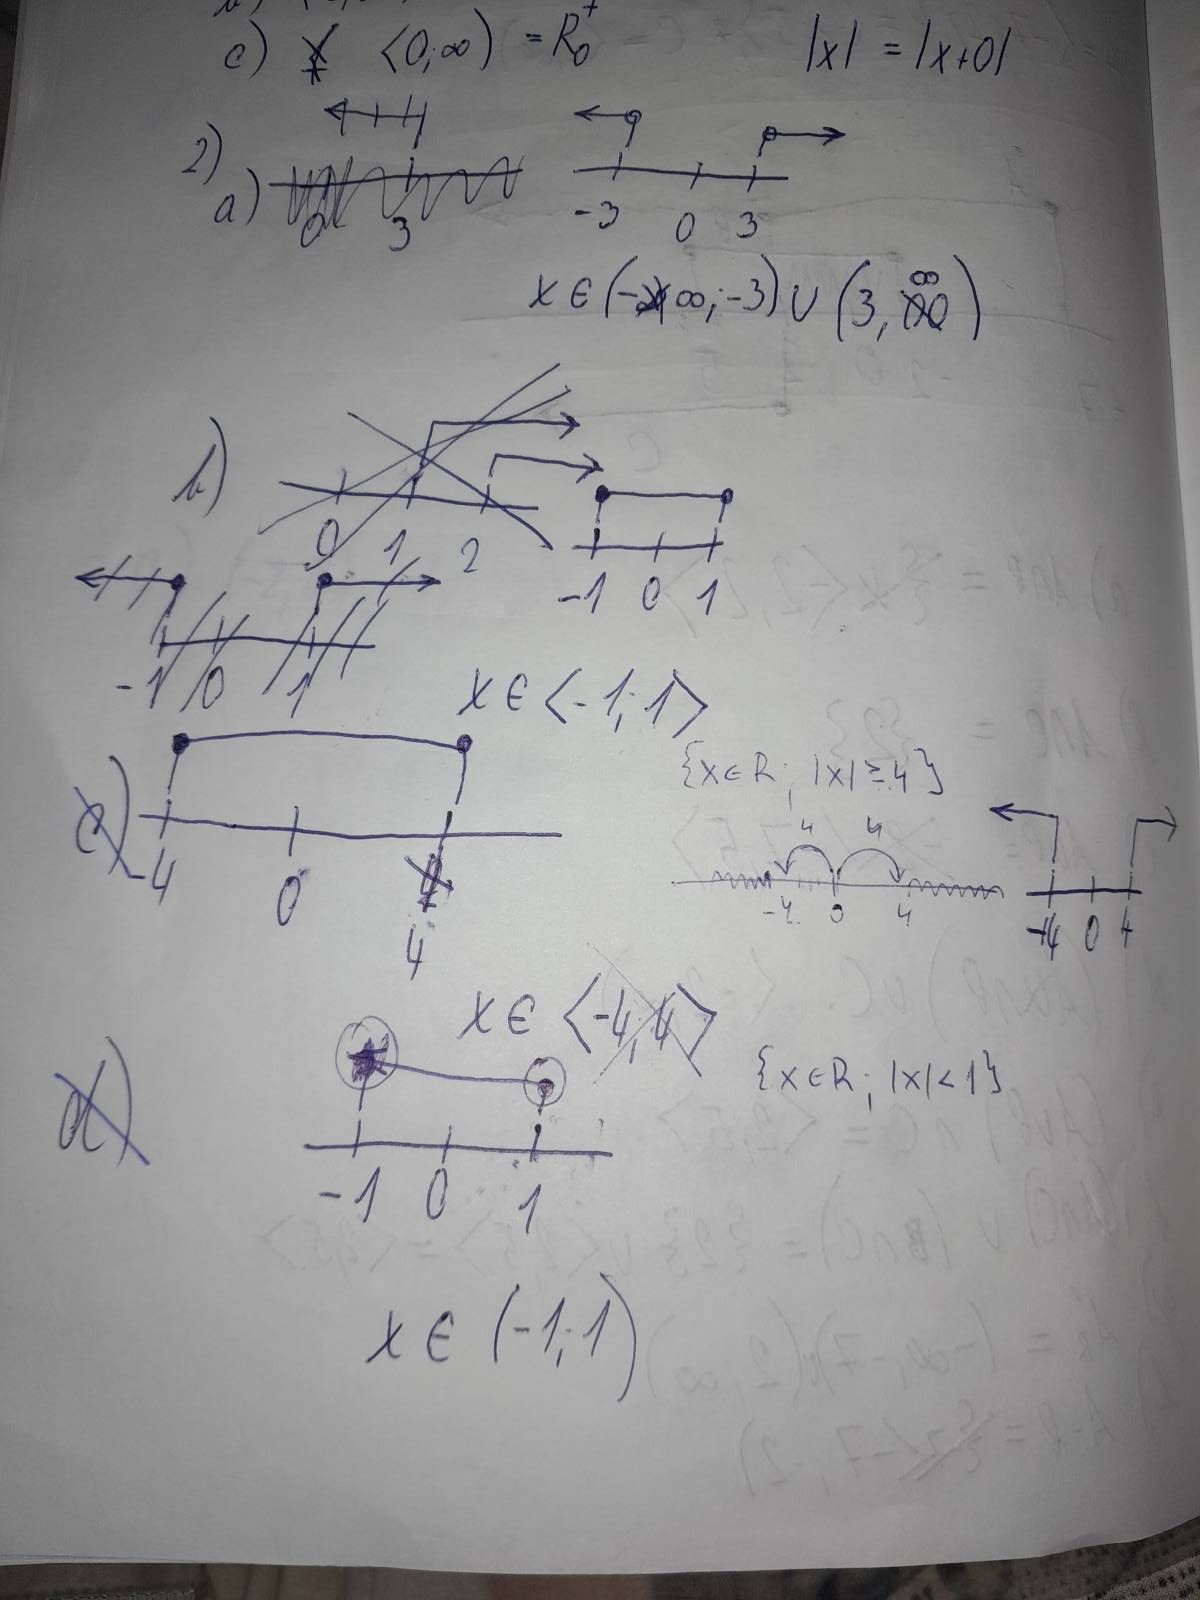 c) <0;∞) = R₀⁺ |x| = |x+0|
2)
a) 0 3 -3 0 3
x ∈ (-∞;-3) ∪ (3,∞)
b) 0 1 2 -1 0 1
-1 0 1
x ∈ <-1;1>
{x∈R; |x|≥4}
c) -4 0 4
4 4
-4 0 4 -4 0 4
x ∈ <-4;4>
{x∈R; |x|<1}
d) -1 0 1
x ∈ (-1;1)